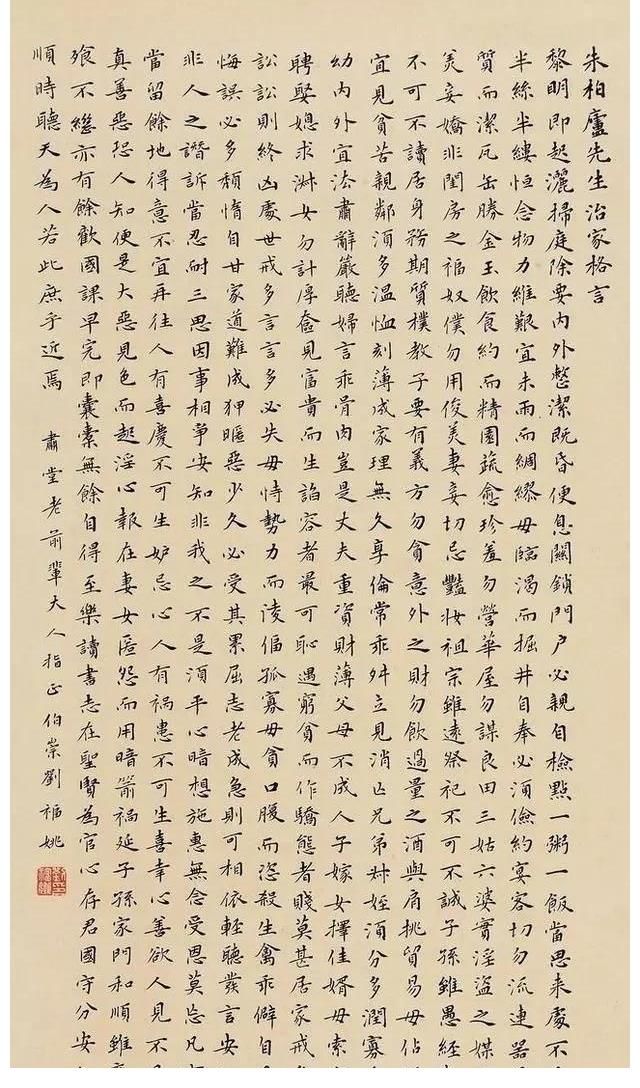 朱柏廬先生治家格言
黎明即起灑掃庭除要內外整潔既昏便息關鎖門戶必親自檢點一粥一飯當思来處不
半絲半縷恒念物力維艱宜未雨而綢繆毋臨渴而掘井自奉必須儉約宴客切勿流連器
質而潔瓦缶勝金玉飲食約而精園蔬愈珍羞勿營華屋勿謀良田三姑六婆實淫盜之媒
美妾嬌非閨房之福奴僕勿用俊美妻妾切忌豔妝祖宗雖遠祭祀不可不誠子孫雖愚經
不可不讀居身務期質樸教子要有義方勿貪意外之財勿飲過量之酒與肩挑貿易毋佔
宜見貧苦親鄰須多温恤刻薄成家理無久享倫常乖舛立見消亡兄弟叔姪須分多潤寡
幼內外宜法肅辭嚴聽婦言乖骨肉豈是丈夫重資財薄父母不成人子嫁女擇佳婿毋索
聘娶媳求淑女勿計厚奩見富貴而生諂容者最可恥遇窮貧而作驕態者賤莫甚居家戒
訟訟則終凶處世戒多言言多必失毋恃勢力而淩偪孤寡毋貪口腹而恣殺生禽乖僻自
悔誤必多頹惰自甘家道難成狎暱惡少久必受其累屈志老成急則可相依輕聽發言安
非人之譖訴當忍耐三思因事相爭安知非我之不是須平心暗想施惠無念受恩莫忘凡
當留餘地得意不宜再往人有喜慶不可生妒忌心人有禍患不可生喜幸心善欲人見不
真善惡恐人知便是大惡見色而起淫心報在妻女匿怨而用暗箭禍延子孫家門和順雖
飱不繼亦有餘歡國課早完即囊橐無餘自得至樂讀書志在聖賢為官心存君國守分安
順時聽天為人若此庶乎近焉 肅堂老前輩大人指正 伯崇劉福姚